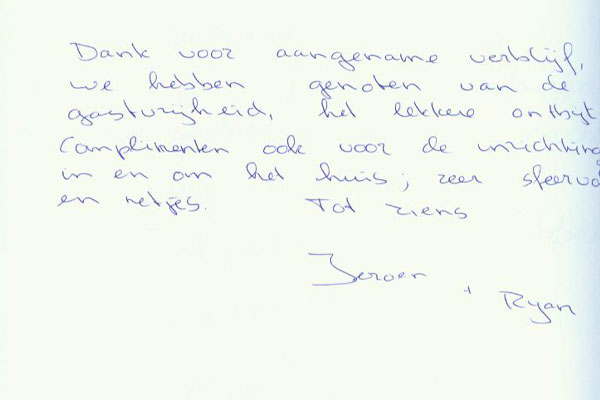 Dank voor aangename verblijf,
we hebben genoten van de
gastvrijheid, het lekkere ontbijt
Complimenten ook voor de inrichting
in en om het huis; zeer sfeervo
en netjes. Tot ziens
Jeroen + Ryan